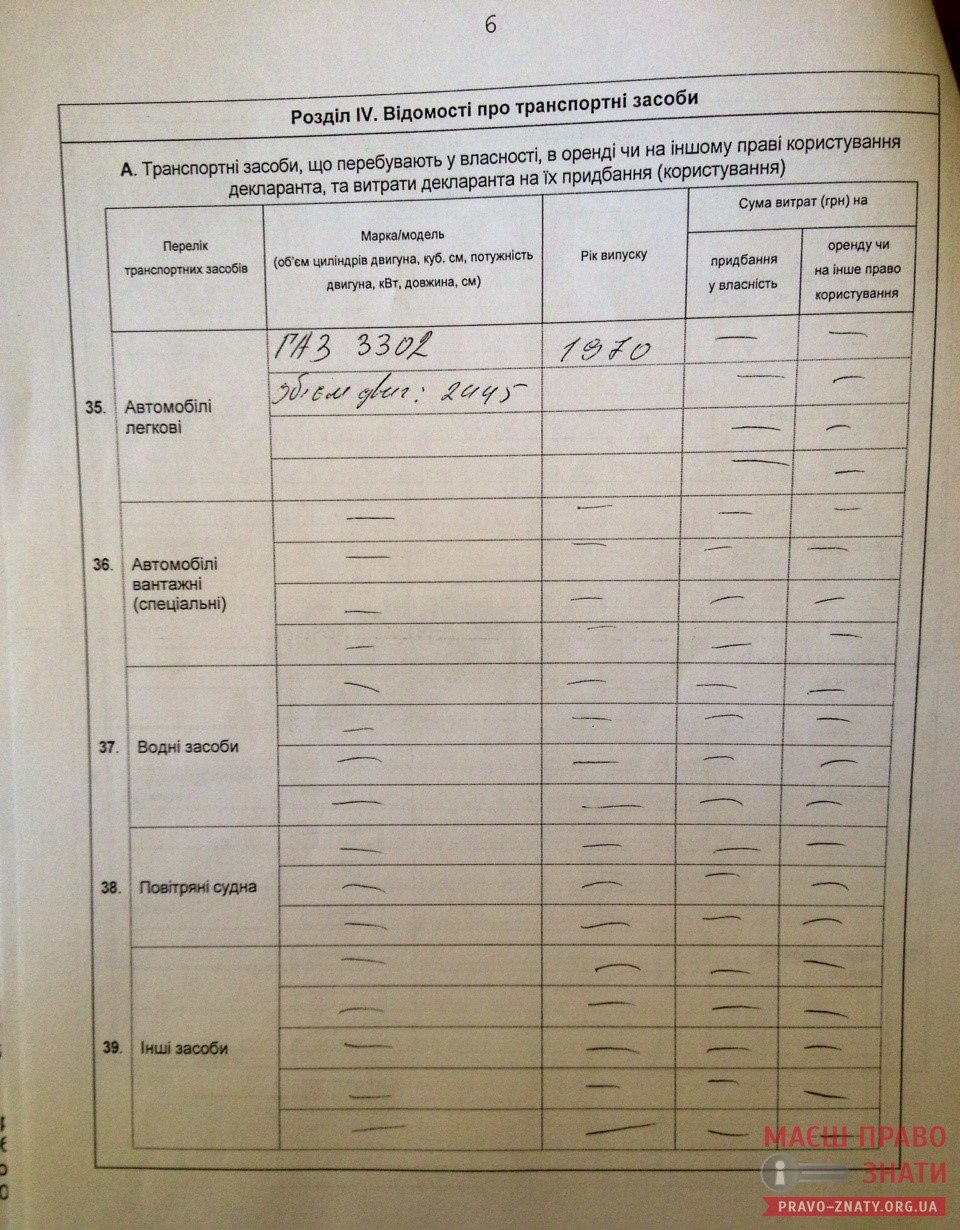 6
Розділ IV. Відомості про транспортні засоби
А. Транспортні засоби, що перебувають у власності, в оренді чи на іншому праві користування
декларанта, та витрати декларанта на їх придбання (користування)
Перелік
транспортних засобів
Марка/модель
(об'єм циліндрів двигуна, куб. см, потужність
двигуна, кВт, довжина, см)
Рік випуску
Сума витрат (грн) на
придбання
у власність
оренду чи
на інше право
користування
35. Автомобілі
легкові
ГАЗ 3302 1970 — —
об'єм двиг: 2445 — —
— —
— —
36. Автомобілі
вантажні
(спеціальні)
— — — —
— — — —
— — — —
— — — —
37. Водні засоби
— — — —
— — — —
— — — —
— — — —
38. Повітряні судна
— — — —
— — — —
— — — —
39. Інші засоби
— — — —
— — — —
— — — —
— — — —
— — — —
МАЄШ ПРАВО
ЗНАТИ
PRAVO-ZNATY.ORG.UA